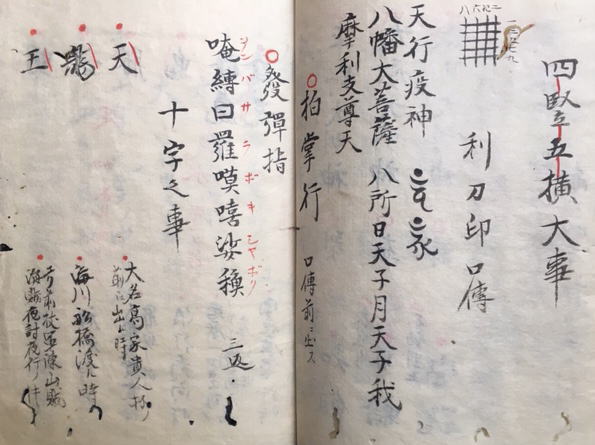 四竪五横大事
八六四二
一三五七九
利刀印口傳
天行疫神
八幡大菩薩 八所日天子月天子我
摩利支尊天
拍掌行 口傳前ニ出ス
發彈指
唵縛曰羅嘆嘻娑穐 三返
ヲンバサラボキシヤボリ
十字之事
天 大名高家貴人抔前江出ル時
龍 海川船橋渡ル時
王